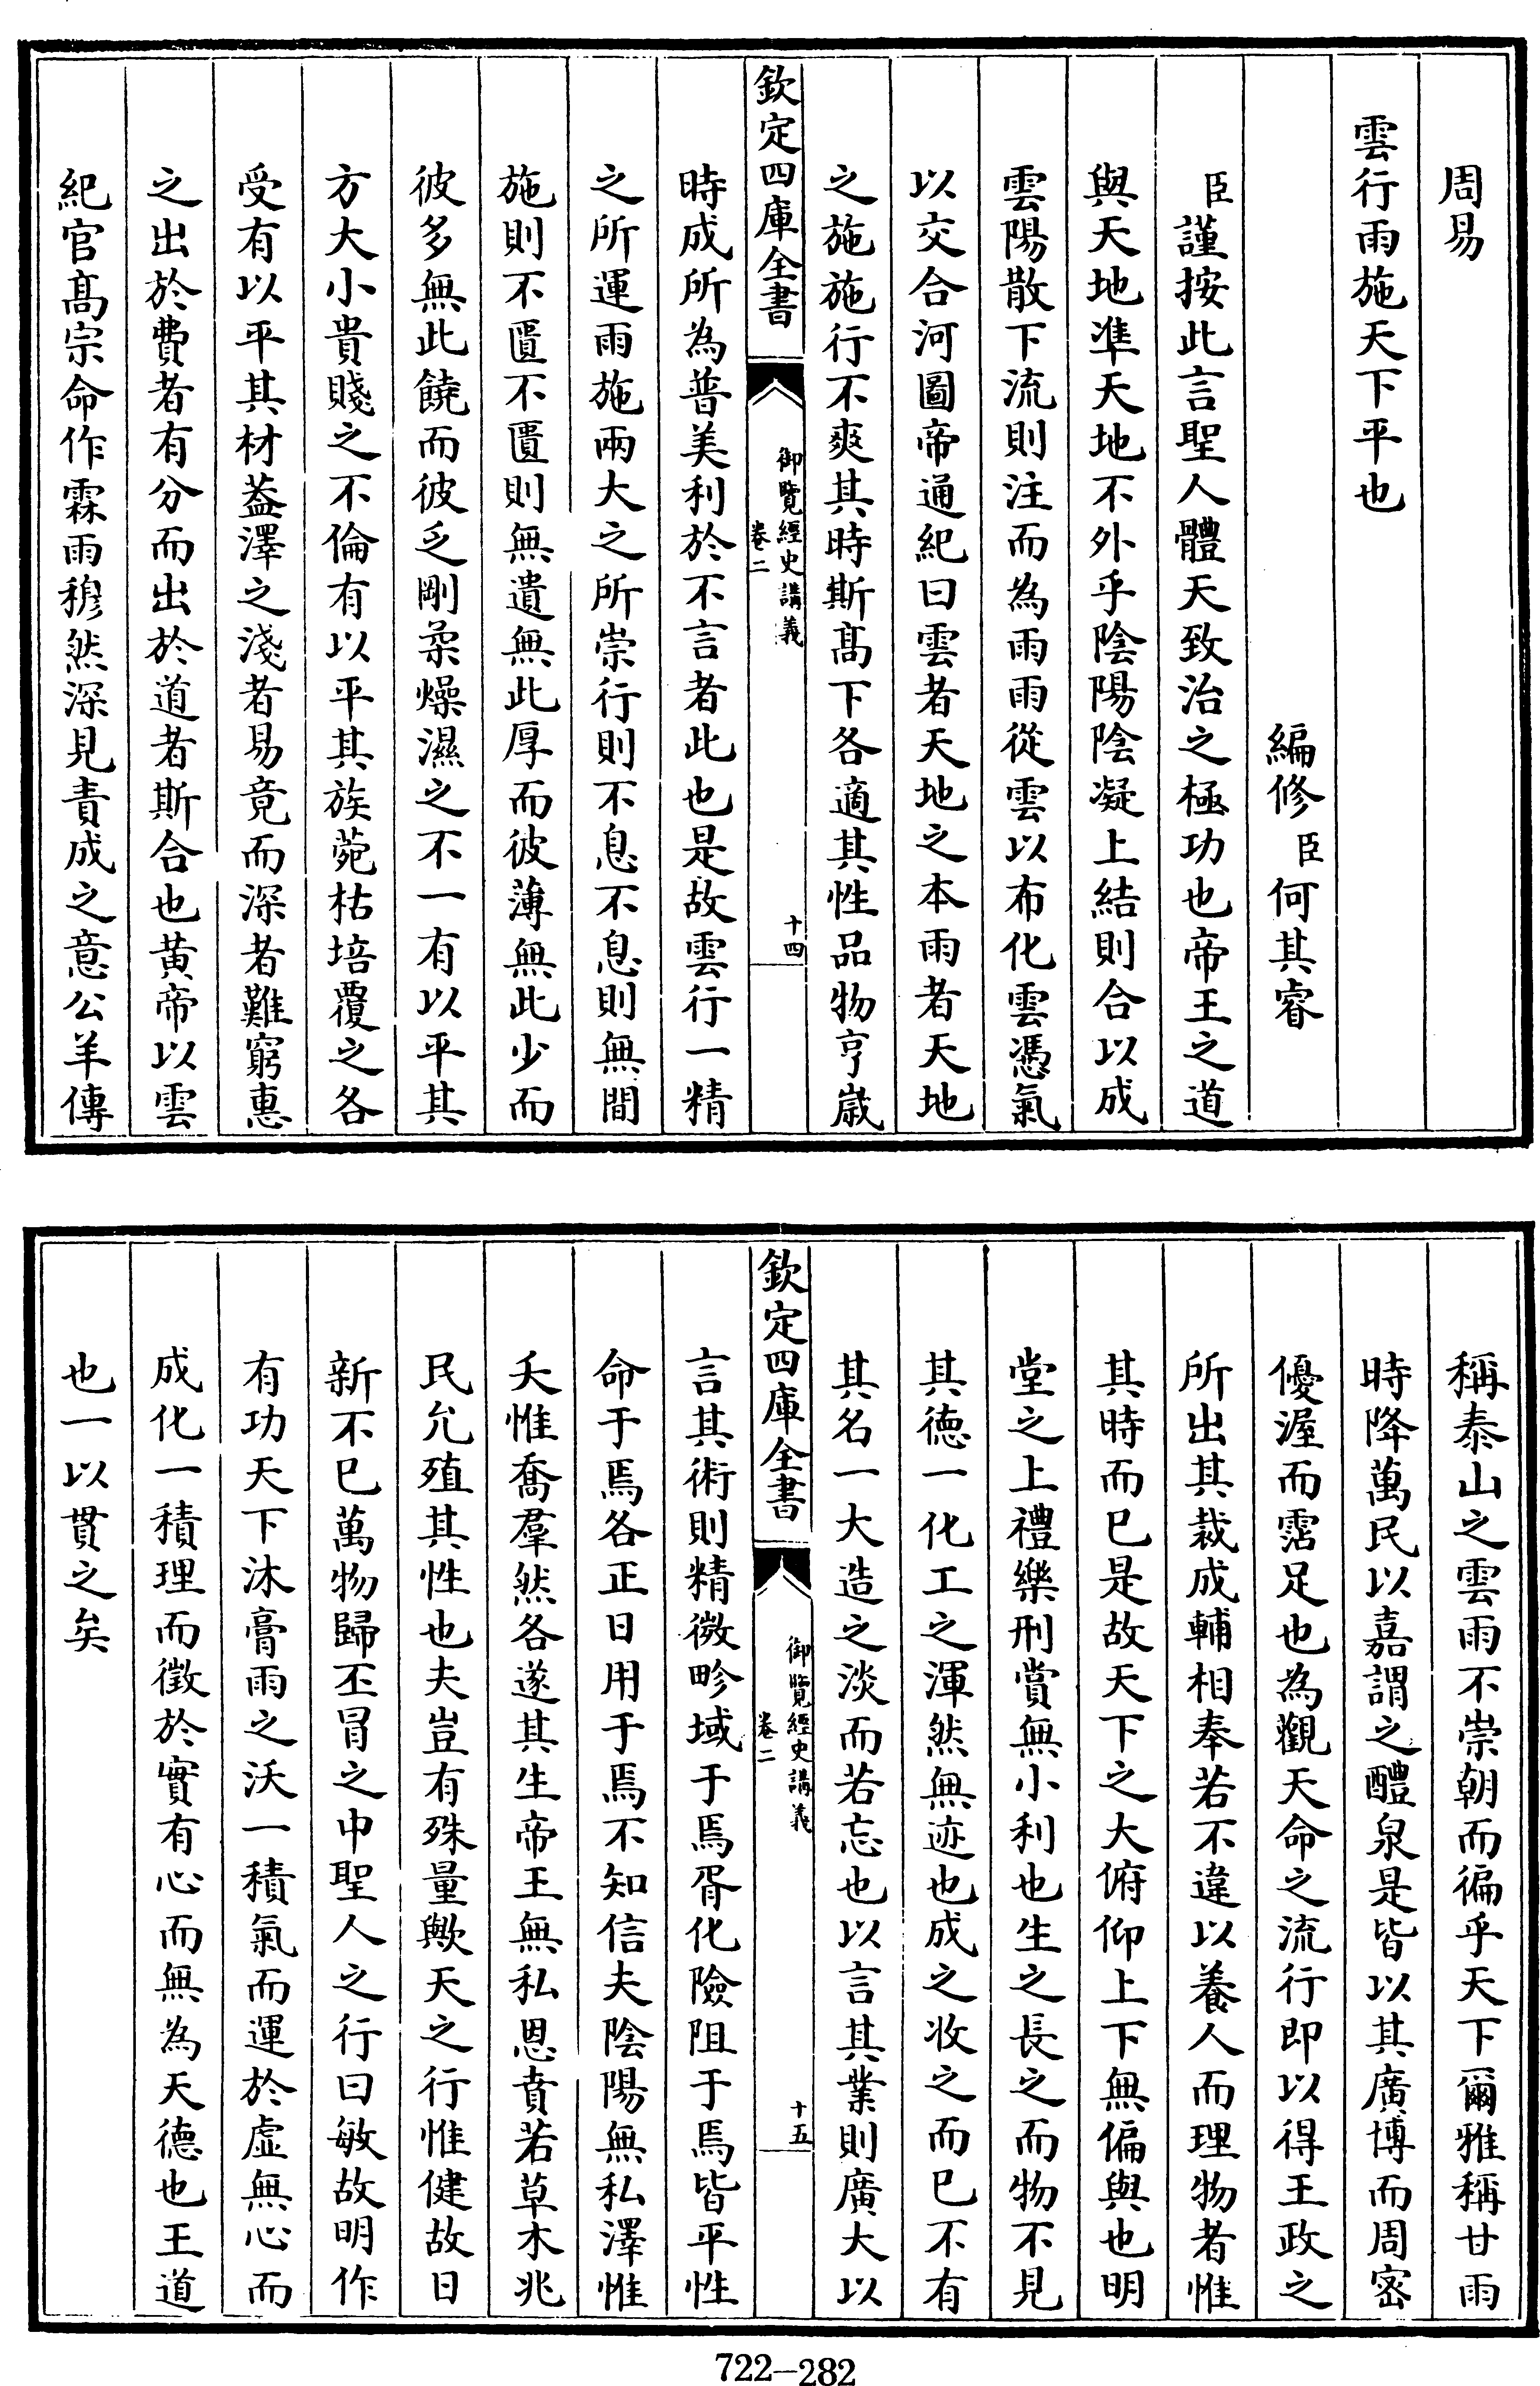 周易
雲行雨施天下平也
編修臣何其睿
臣謹按此言聖人體天致治之極功也帝王之道
與天地凖天地不外乎陰陽陰凝上結則合以成
雲陽散下流則注而為雨雨從雲以布化雲憑氣
以交合河圖帝通紀曰雲者天地之本雨者天地
之施施行不爽其時斯髙下各適其性品物亨嵗
欽定四庫全書
御覽經史講義
卷二
十四
時成所為普美利於不言者此也是故雲行一精
之所運雨施兩大之所崇行則不息不息則無間
施則不匱不匱則無遺無此厚而彼薄無此少而
彼多無此饒而彼乏剛柔燥濕之不一有以平其
方大小貴賤之不倫有以平其族菀枯培覆之各
受有以平其材葢澤之淺者易竟而深者難窮惠
之出於費者有分而出於道者斯合也黄帝以雲
紀官髙宗命作霖雨穆然深見責成之意公羊傳
稱泰山之雲雨不崇朝而徧乎天下爾雅稱甘雨
時降萬民以嘉謂之醴泉是皆以其廣博而周宻
優渥而霑足也為觀天命之流行即以得王政之
所出其裁成輔相奉若不違以養人而理物者惟
其時而已是故天下之大俯仰上下無偏與也明
堂之上禮樂刑賞無小利也生之長之而物不見
其德一化工之渾然無迹也成之收之而已不有
其名一大造之淡而若忘也以言其業則廣大以
欽定四庫全書
御覽經史講義
卷二
十五
言其術則精微畛域于焉胥化險阻于焉皆平性
命于焉各正日用于焉不知信夫陰陽無私澤惟
夭惟喬羣然各遂其生帝王無私恩賁若草木兆
民允殖其性也夫豈有殊量歟天之行惟健故日
新不已萬物歸丕冒之中聖人之行曰敏故明作
有功天下沐膏雨之沃一積氣而運於虚無心而
成化一積理而徵於實有心而無為天德也王道
也一以貫之矣
722-282